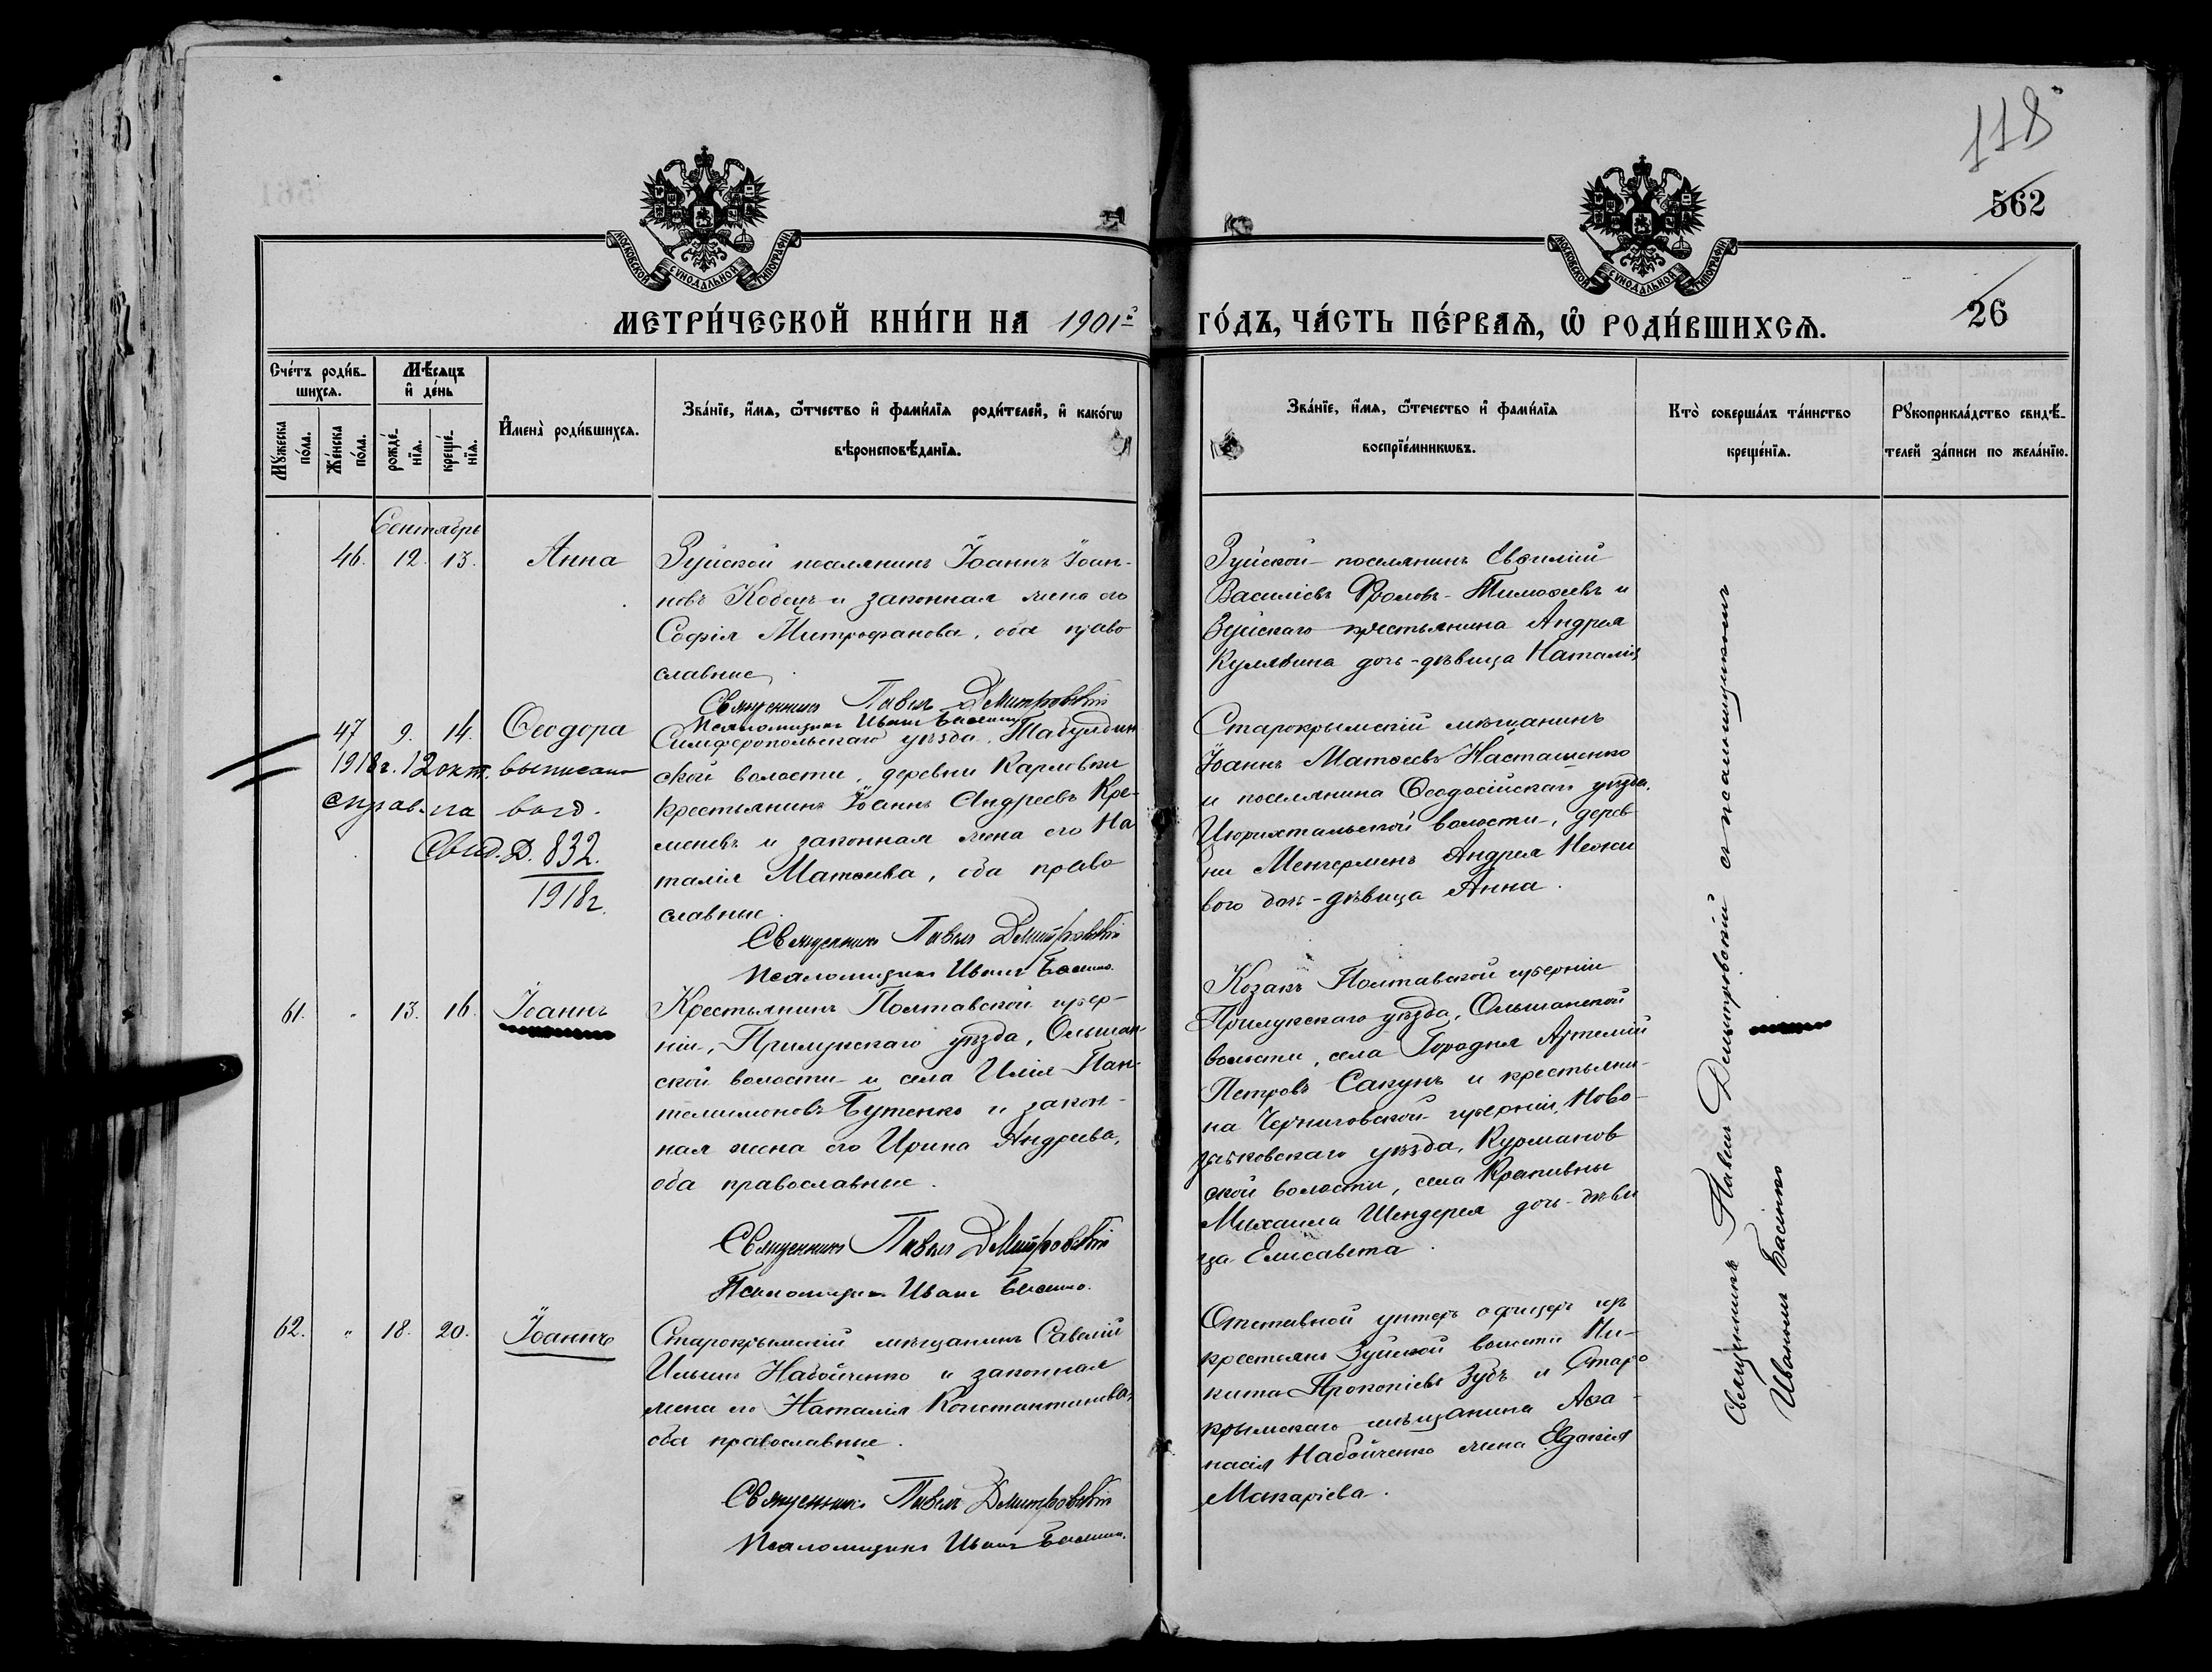 118
562
26
МОСКОВСКОЙ СѴНОДАЛЬНОЙ ТИПОГРАФІИ
МОСКОВСКОЙ СѴНОДАЛЬНОЙ ТИПОГРАФІИ
МЕТРИ́ЧЕСКОЙ КНИ́ГИ НА 1901й ГО́ДЪ, ЧА́СТЬ ПЕ́РВАѦ, Ѡ РОДИ́ВШИХСѦ.
Сче́тъ роди́в-
шихсѧ.
Мѣ́сѧцъ
и де́нь
Мꙋ́жеска
по́ла.
Же́нска
по́ла.
рожде́-
нїѧ.
креще́-
нїѧ.
И҆мена̀ роди́вшихсѧ.
Зва́нїе, и҆́мѧ, ѻ҆́тчество и҆ фами́лїѧ роди́телей, и҆ како́гѡ
вѣроисповѣ́данїѧ.
Зва́нїе, и҆́мѧ, ѻ҆́течество и҆ фами́лїѧ
воспрїе́мникѡвъ.
Кто̀ соверша́лъ та́инство
креще́нїѧ.
Рꙋкоприкла́дство свидѣ́-
телей за́писи по жела́нїю.
Сентябрь
46. 12. 13. Анна
Зуйской поселянинъ Іоаннъ Іоан-
новъ Кобецъ и законная жена его
Софія Митрофанова, оба право
славные
Священникъ Павелъ Дмитровскій
Псаломщикъ Иванъ Басенко
Зуйской поселянинъ Евѳимій
Василіевъ Фроловъ-Тимоѳеевъ и
Зуйскаго крестьянина Андрея
Кулявина дочь-дѣвица Наталія
47 9. 14. Ѳеодора
1918г. 12 окт. выписано
справ. на
Свид. №. 832.
1918г.
Симферопольскаго уѣзда, Табулдин
ской волости, деревни Карловки
крестьянинъ Іоаннъ Андреевъ Кре-
меневъ и законная жена его На
талія Матѳеева, оба право
славные.
Священникъ Павелъ Дмитровскій
Псаломщикъ Иванъ Басенко.
Старокрымскій мѣщанинъ
Іоаннъ Матѳеевъ Насташенко
и поселянина Ѳеодосійскаго уѣзда,
Цюрихтальской волости, дерев
ни Менгерменъ Андрея Нежи
вого дочь-дѣвица Анна.
61. " 13. 16. Іоаннъ
Крестьянинъ Полтавской губер-
ніи, Прилукскаго уѣзда, Ольшан-
ской волости и села Илія Пан-
телимоновъ Бутенко и закон-
ная жена его Ирина Андреева,
оба православные.
Священникъ Павелъ Дмитровскій
Псаломщикъ Иванъ Басенко.
Козакъ Полтавской губерніи
Прилукскаго уѣзда, Ольшанской
волости, села Городня Артемій
Петровъ Сакунъ и крестьяни-
на Черниговской губерніи, Ново-
зыбковскаго уѣзда, Курманов
ской волости, села Крапивны
Михаила Шендерея дочь-дѣви
ца Елисавета.
62. " 18. 20. Іоаннъ
Старокрымскій мѣщанинъ Савелій
Ильинъ Набойченко и законная
жена его Наталія Константинова,
оба православные.
Священникъ Павелъ Дмитровскій
Псаломщикъ Иванъ Басенко.
Отставной унтеръ офицеръ изъ
крестьянъ Зуйской волости Ни-
кита Прокопіевъ Зубъ и Старо
крымскаго мѣщанина Аѳа-
насія Набойченко жена Евдокія
Макаріева.
Священникъ Павелъ Дмитровскій съ псаломщикомъ
Иваномъ Басенко